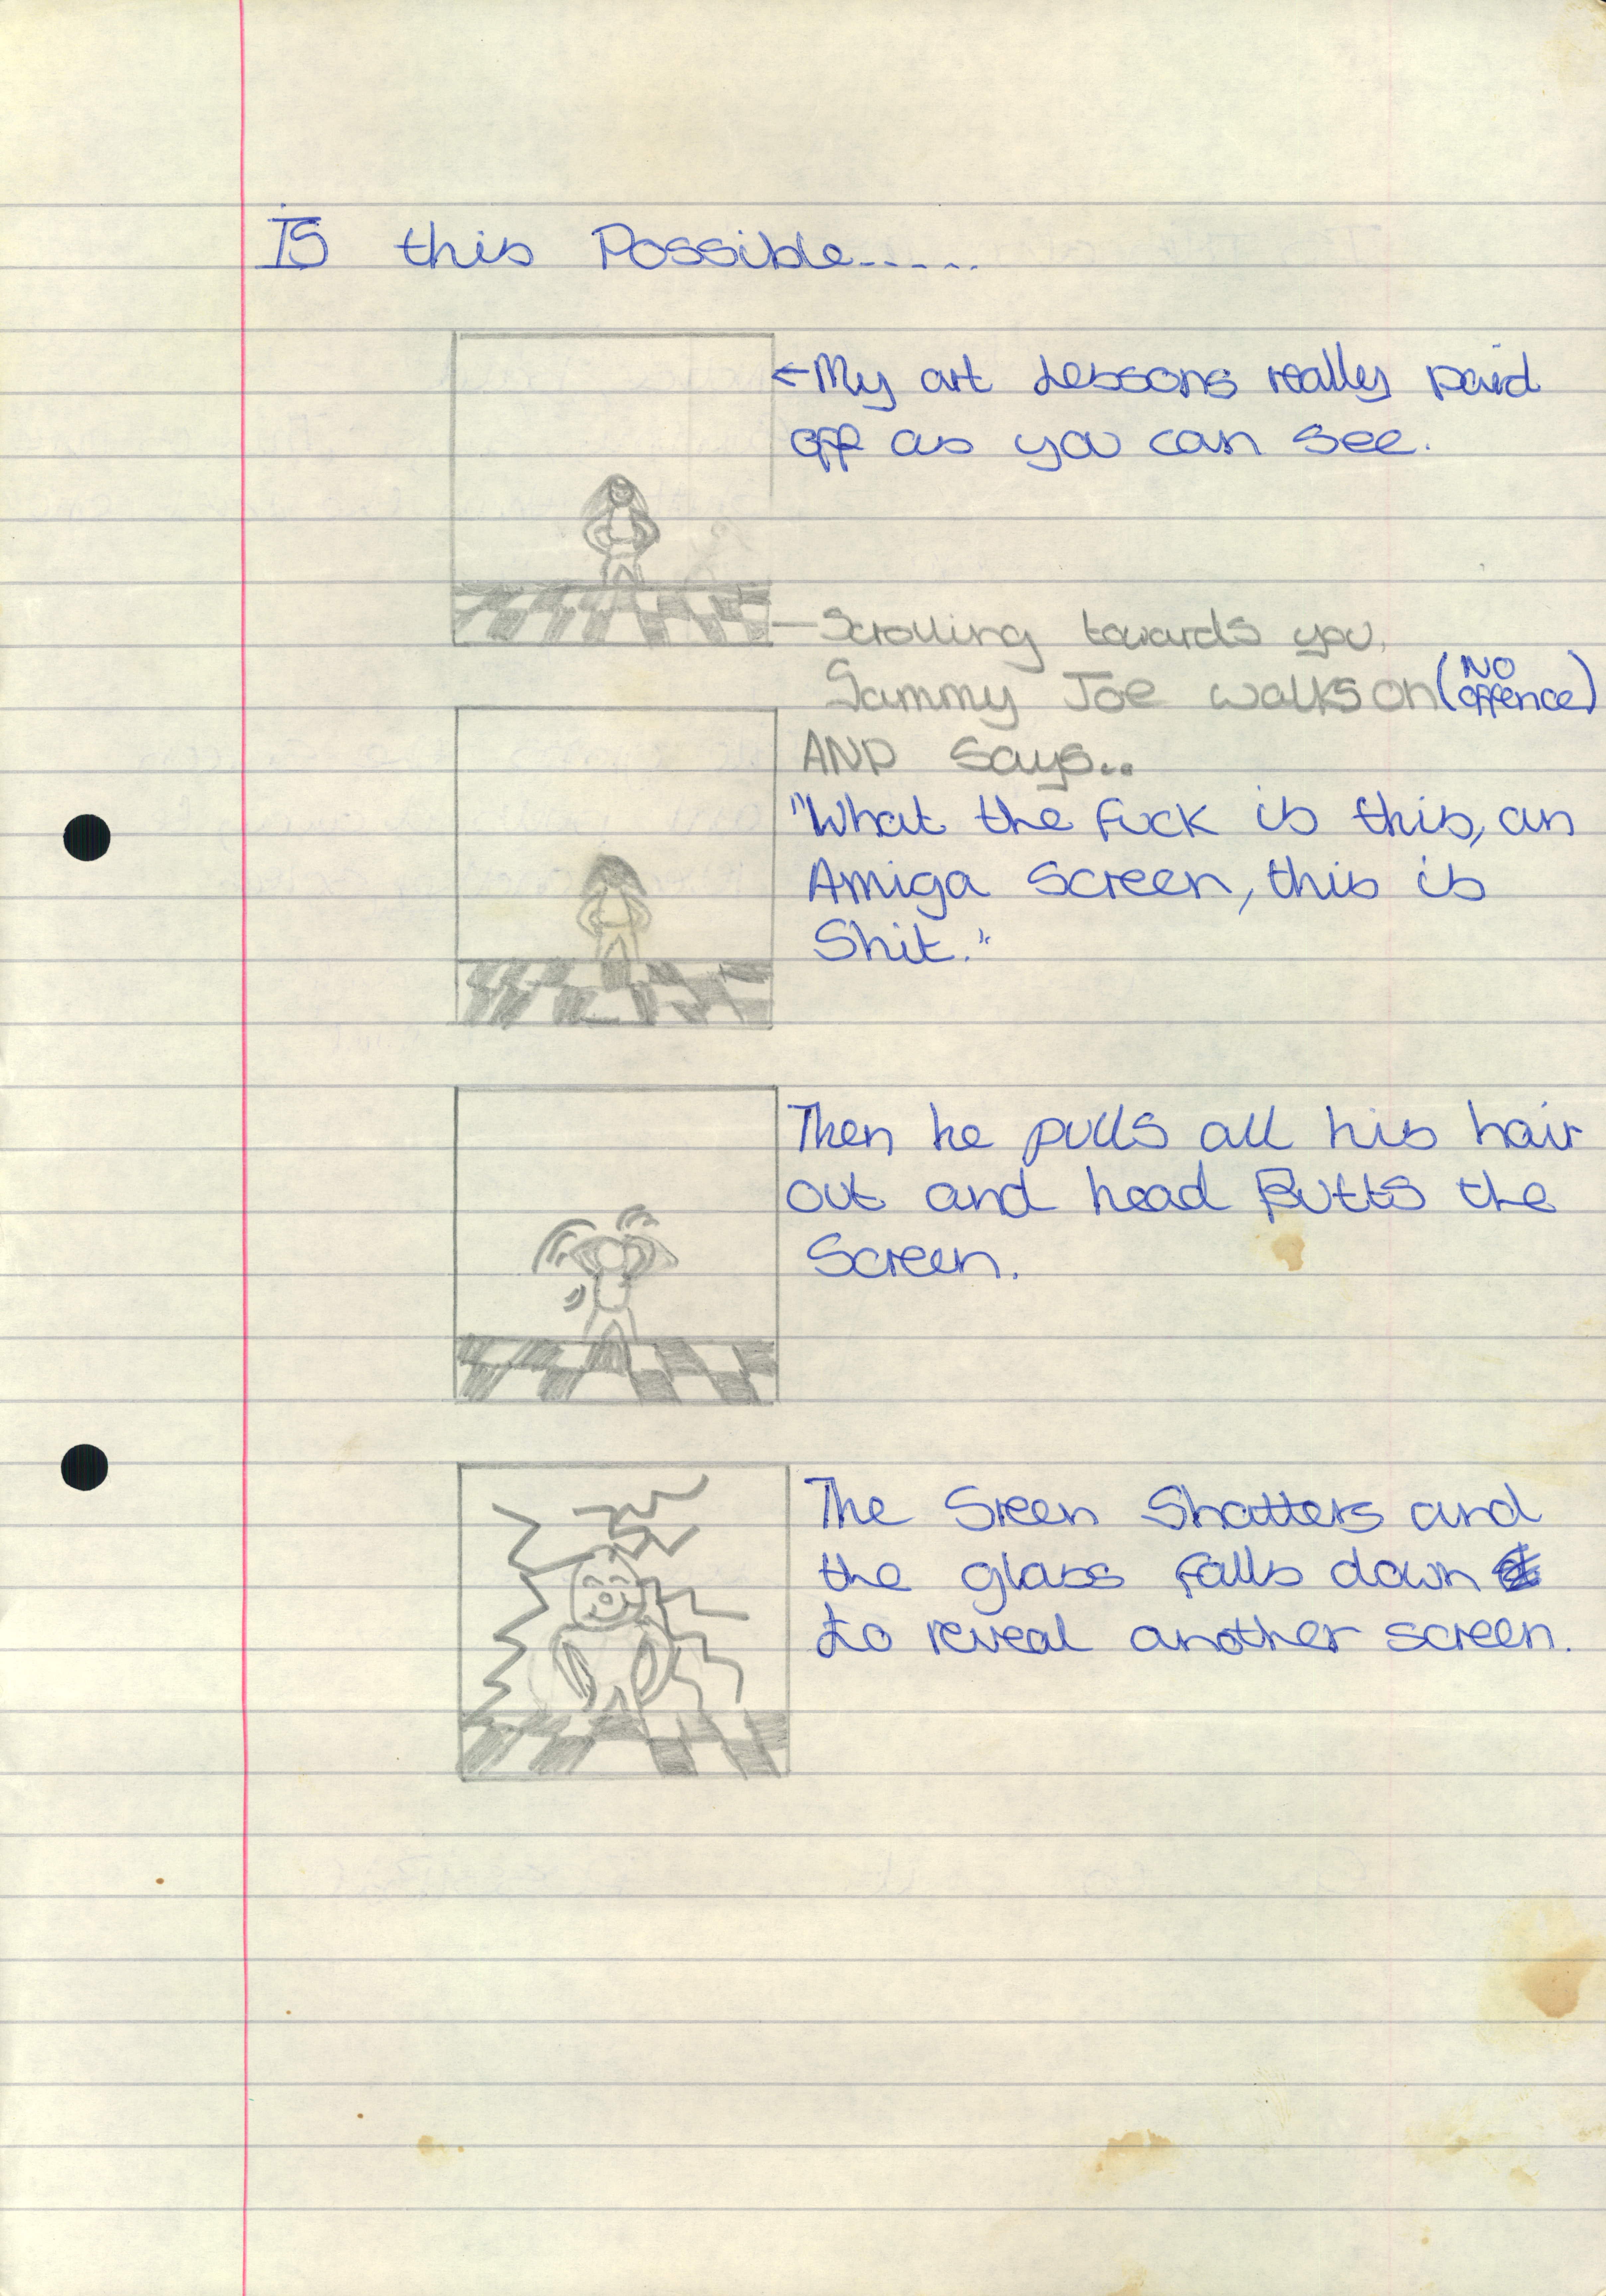 IS this Possible.....
←My art Lessons really paid
off as you can see.
—Scrolling towards you.
Sammy Joe walks on (NO offence)
AND says..
"What the fuck is this, an
Amiga screen, this is
Shit."
Then he pulls all his hair
out and head Butts the
Screen.
The Sreen Shatters and
the glass falls down
to reveal another screen.